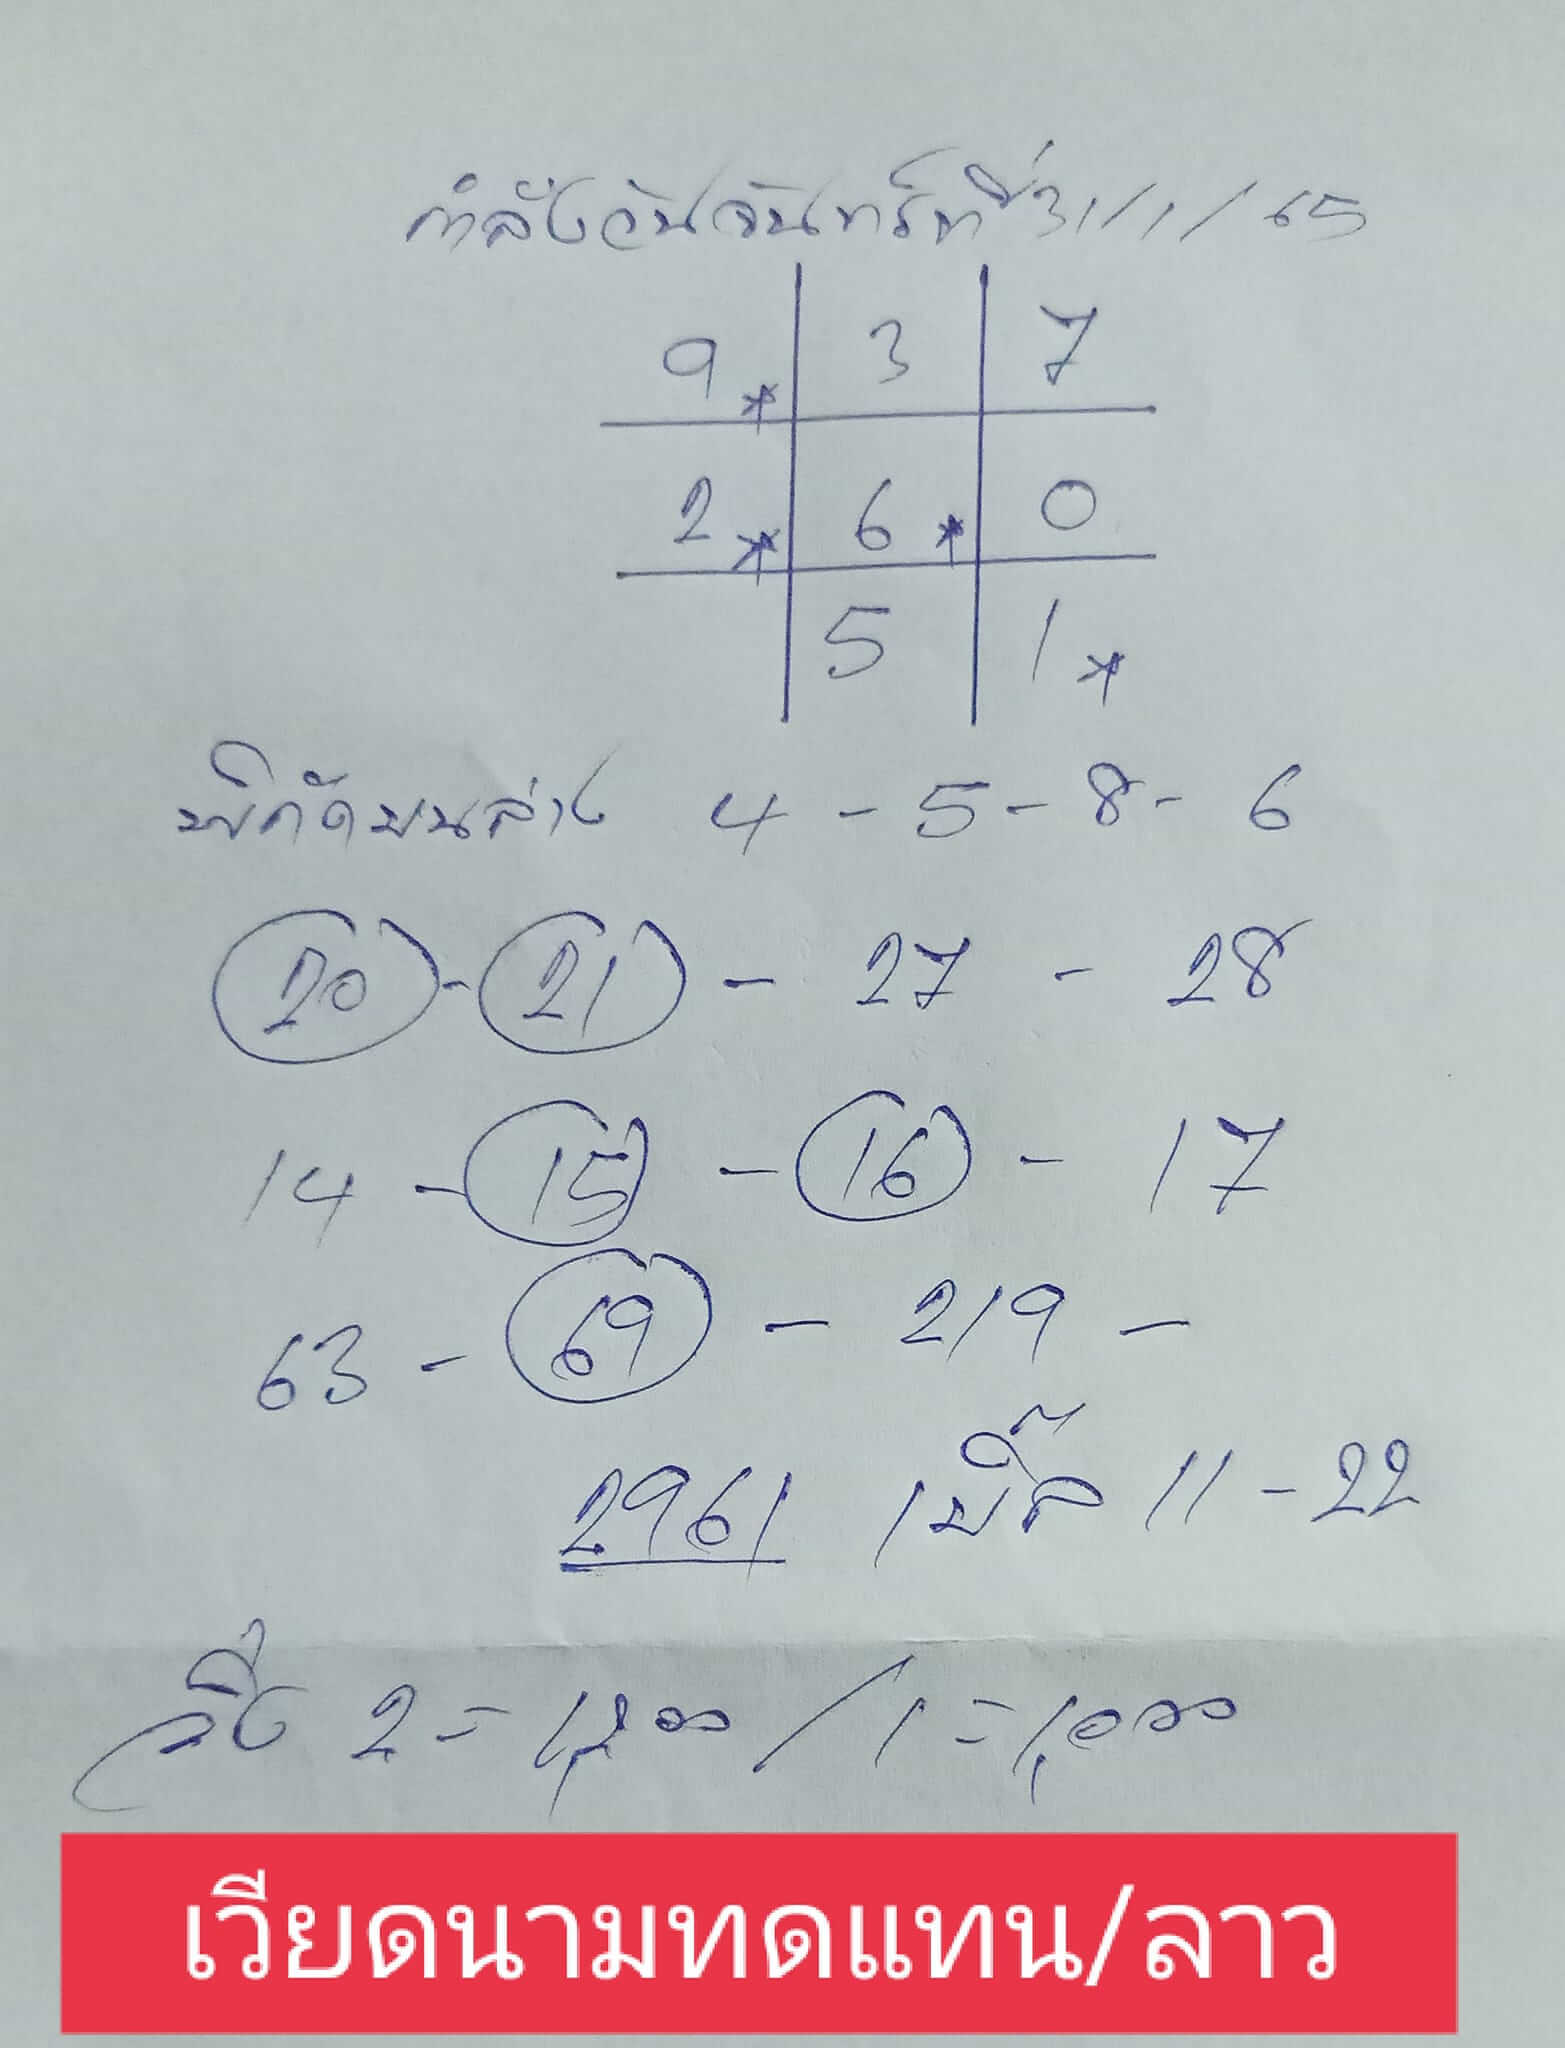 กำลังวันจันทร์ที่ 31/1/65
9* 3 7
2* 6* 0
5 1*
พิกัดบนล่าง 4 - 5 - 8 - 6
20 - 21 - 27 - 28
14 - 15 - 16 - 17
63 - 69 - 219 -
2961 เบิ๊ล 11 - 22
2 = 1,200 / 1 = 1,000
เวียดนามทดแทน/ลาว